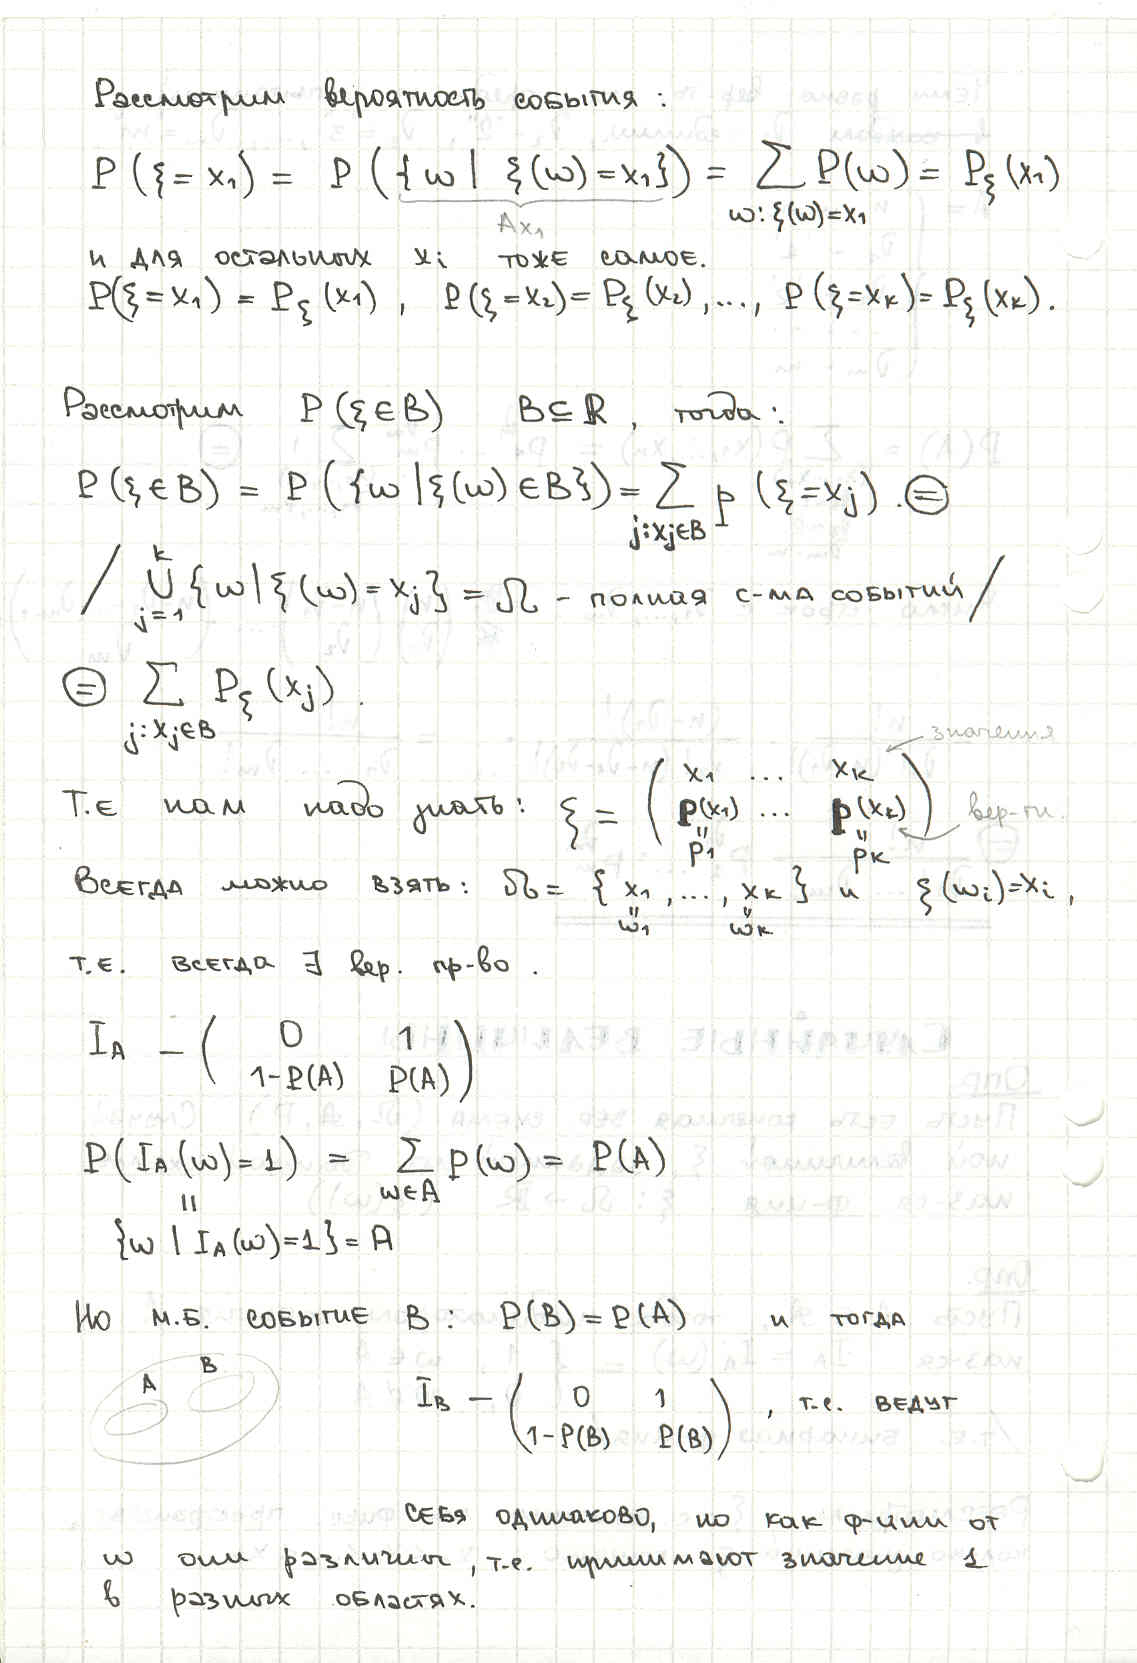 Рассмотрим вероятность события:
P(ξ=x₁) = P({ω | ξ(ω)=x₁}) = ∑ P(ω) = P_ξ(x₁)
A_x₁ ω: ξ(ω)=x₁
и для остальных xᵢ тоже самое.
P(ξ=x₁) = P_ξ(x₁), P(ξ=x₂)=P_ξ(x₂),..., P(ξ=x_k)=P_ξ(x_k).
Рассмотрим P(ξ∈B) B⊆ℝ, тогда:
P(ξ∈B) = P({ω | ξ(ω)∈B}) = ∑ p(ξ=xⱼ). ⊜
j: xⱼ∈B
/ k
∪ {ω | ξ(ω)=xⱼ} = Ω - полная с-ма событий /
j=1
⊜ ∑ P_ξ(xⱼ).
j: xⱼ∈B
значения
Т.е нам надо знать: ξ = ( x₁ ... x_k )
( p(x₁) ... p(x_k) ) вер-ти.
= =
p₁ p_k
Всегда можно взять: Ω = {x₁,..., x_k} и ξ(ωᵢ)=xᵢ,
= =
ω₁ ω_k
т.е. всегда ∃ вер. пр-во.
I_A - ( 0 1 )
( 1-P(A) P(A) )
P(I_A(ω)=1) = ∑ p(ω) = P(A)
= ω∈A
{ω | I_A(ω)=1} = A
Но м.б. событие B: P(B)=P(A) и тогда
A B
I_B - ( 0 1 ) , т.е. ведут
( 1-P(B) P(B) )
себя одинаково, но как ф-ции от
ω они различны, т.е. принимают значение 1
в разных областях.